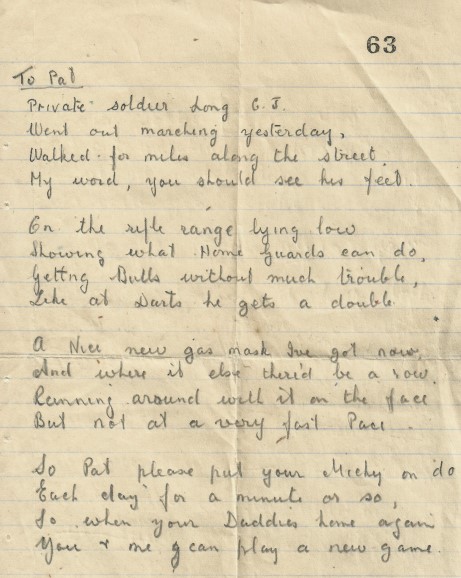 63
To Pat
Private soldier Long C. J.
Went out marching yesterday,
Walked for miles along the street.
My word, you should see his feet.
On the rifle range lying low
Showing what Home Guards can do,
Getting Bulls without much trouble,
Like at Darts he gets a double.
A Nice new gas mask Ive got now,
And where it else there'd be a row.
Running around with it on the face
But not at a very fast Pace.
So Pat please put your Micky on do
Each day for a minute or so,
So when your Daddies home again
You + me can play a new game.